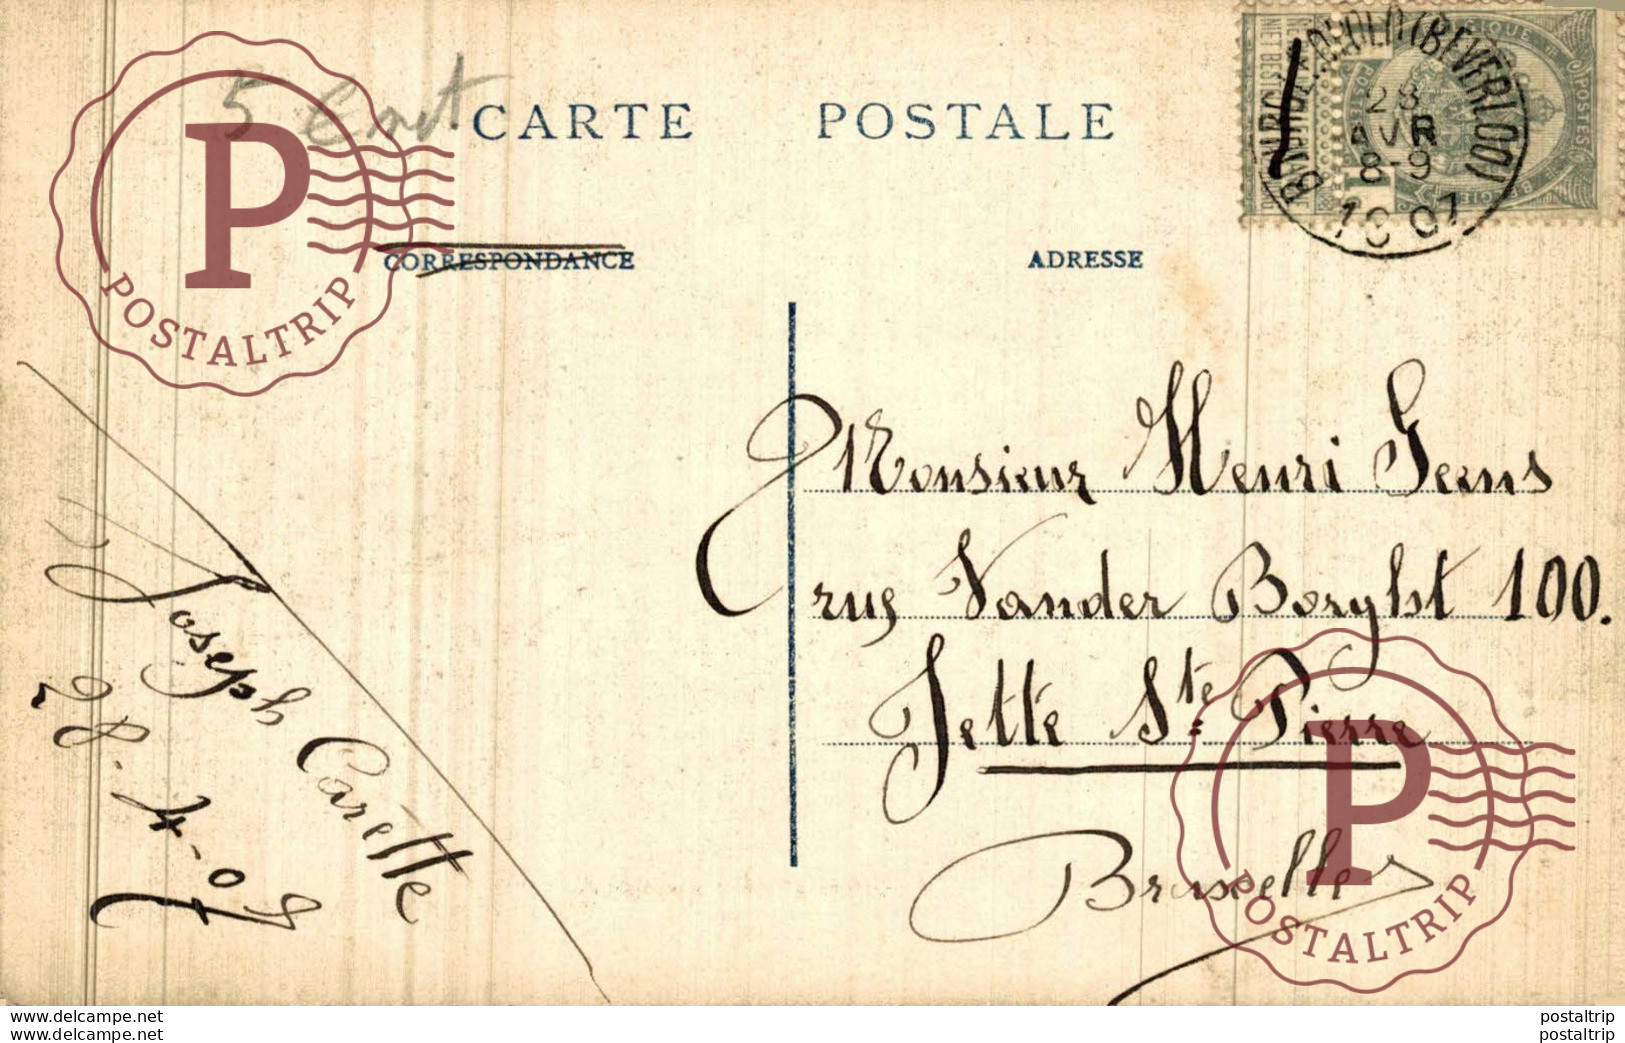 5 Cent
CARTE POSTALE
CORRESPONDANCE
ADRESSE
BOURG-LÉOPOLD (BEVERLOO)
28
AVR
8-9
1907
POSTES
Monsieur Henri Geens
rue Vander Borght 100.
Jette Ste Pierre
Bruxelles
Joseph Carette
28-4-07
P
POSTALTRIP
P
POSTALTRIP
www.delcampe.net
www.delcampe.net
postaltrip
postaltrip